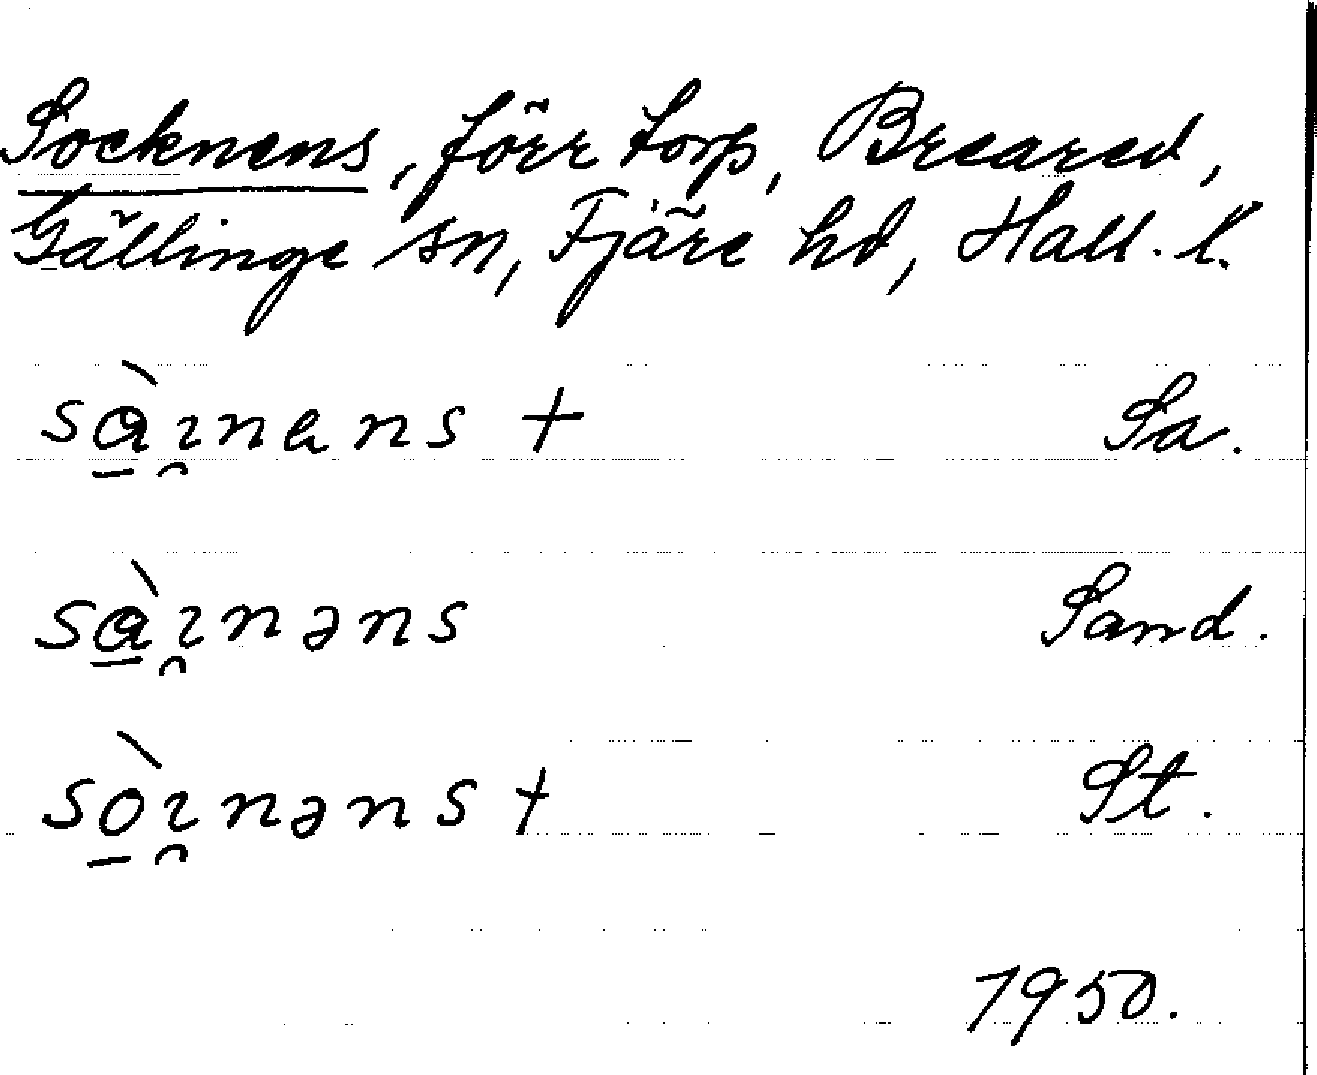 Socknens, förr torp, Breared,
Gällinge sn, Fjäre hd, Hall. l.
sɑ̱̀ɿ̯nans + Sa.
sɑ̱̀ɿ̯nəns Sand.
sò̱ɿ̯nəns + St.
1950.